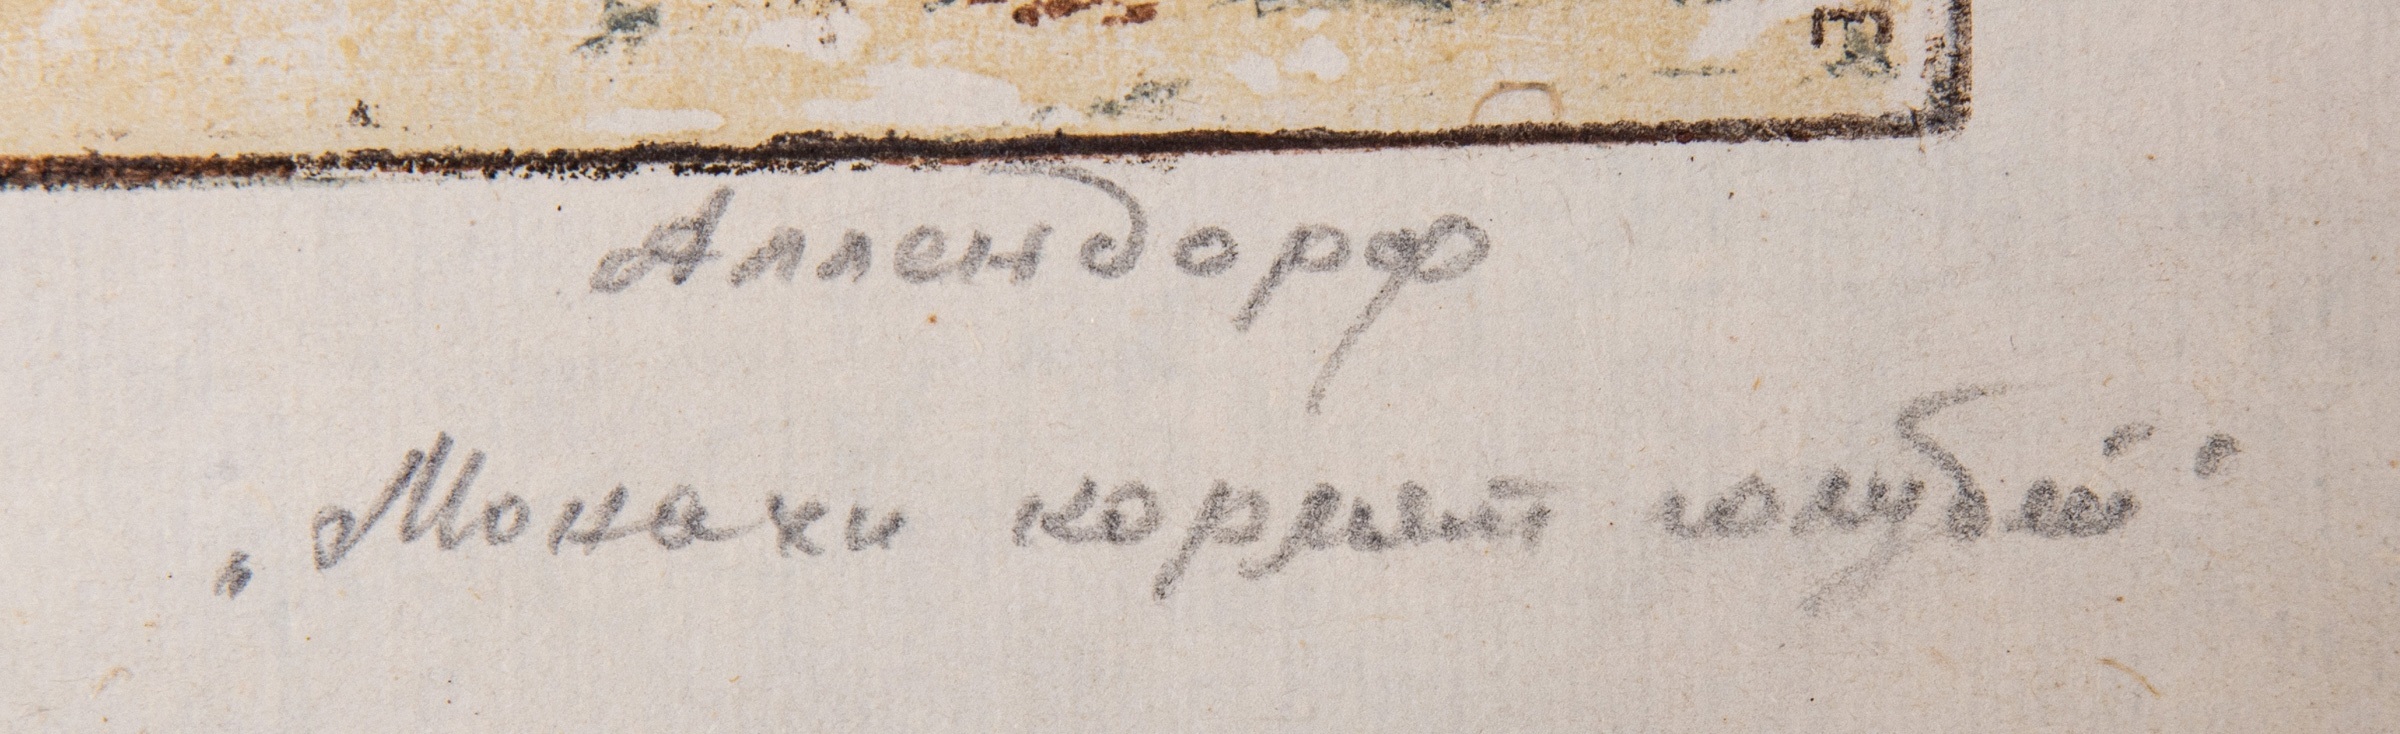 Аллендорф
„Монахи кормят голубей"